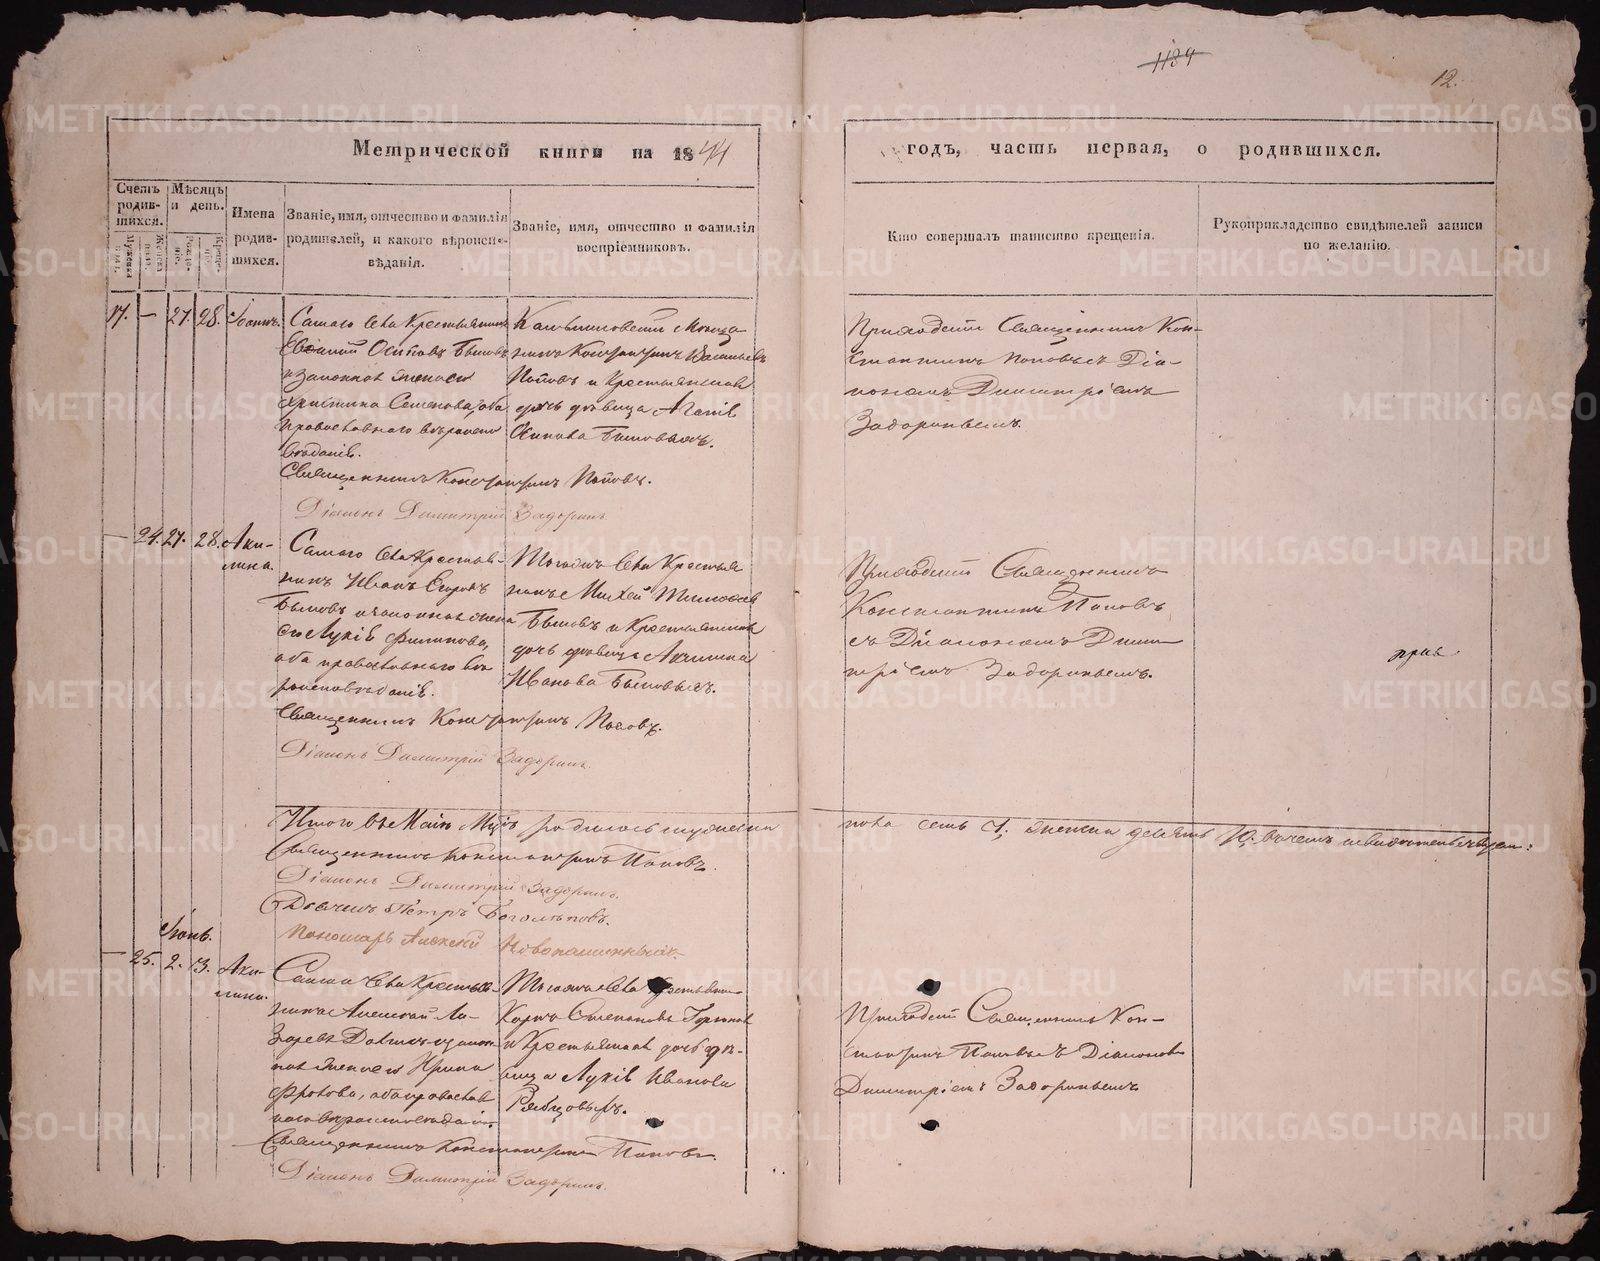 1184
12.
Метрической книги на 1844
годъ, часть первая, о родившихся.
Счетъ родив-шихся.
Мѣсяцъ и день.
Имена родив-шихся.
Званіе, имя, отчество и фамилія родителей, и какого вѣроиспо-вѣданія.
Званіе, имя, отчество и фамилія воспріемниковъ.
Кто совершалъ таинство крещенія.
Рукоприкладство свидѣтелей записи по желанію.
17. — 27. 28. Іоаннъ.
Сего Села Крестьянинъ
Осиповъ Бытовъ
и законная жена его
Христина Семенова, оба
православнаго вѣроиспо
вѣданія.
Священникъ Константинъ Поповъ.
Діаконъ Димитрій Задоринъ
Константинъ Васильевъ
Поповъ и Крестьянская
дочь дѣвица
Осипова Бытовыхъ.
Приходскій Священникъ Кон-
стантинъ Поповъ съ Діа-
кономъ Димитріемъ
Задоринымъ.
— 24. 27. 28. Аки-
лина.
Села Крестья-
нинъ Иванъ
Бытовъ и законная жена
его Лукія Филипова,
оба православнаго вѣ
роисповѣданія.
Священникъ Константинъ Поповъ.
Діаконъ Димитрій Задоринъ.
Тогожъ Села Крестья
нинъ Михей Тимофеевъ
Бытовъ и Крестьянская
дочь дѣвица Акилина
Иванова Бытовыхъ.
Приходскій Священникъ
Константинъ Поповъ
съ Діакономъ Дими
тріемъ Задоринымъ.
Итого въ Маіѣ Мцѣ родилось мужеска
пола семь 7. женска десять 10. въ чемъ и свидѣтельствуемъ:
Священникъ Константинъ Поповъ.
Діаконъ Димитрій Задоринъ.
Дьячекъ Петръ Боголѣповъ.
Пономарь Алексій
Іюнь.
— 25. 2. 3. Аки-
лина.
Села Крестья-
нинъ Алексей Ла-
заревъ и закон
ная жена его Ирина
Фролова, оба православ
наго вѣроисповѣданія.
Священникъ Константинъ Поповъ.
Діаконъ Димитрій Задоринъ.
Тогожъ Села Крестьянинъ
Карпъ Степановъ
и Крестьянская дочь дѣ-
вица Лукія Иванова
Рябцовыхъ.
Приходскій Священникъ Кон-
стантинъ Поповъ съ Діакономъ
Димитріемъ Задоринымъ